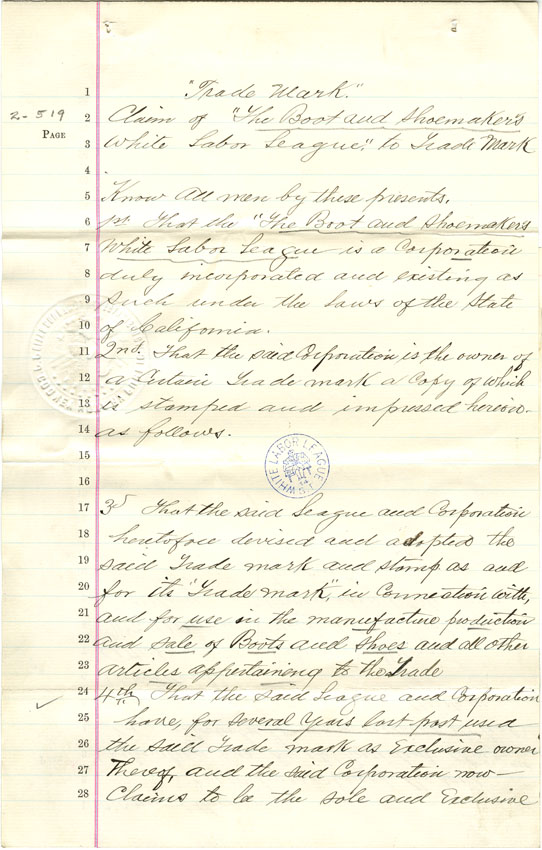 "Trade Mark."
2-519
PAGE
1
2 Claim of "The Boot and Shoemakers
3 White Labor League." to Trade Mark
4
5 Know All men by these presents.
6 1st. That the "The Boot and Shoemakers
7 White Labor League is a Corporation
8 duly incorporated and existing as
9 such under the laws of the State
10 of California.
11 2nd. That the said Corporation is the owner of
12 a certain Trade mark a Copy of which
13 is stamped and impressed hereon.
14 as follows.
15
WHITE LABOR LEAGUE
16
17 3d That the said League and Corporation
18 heretofore devised and adopted the
19 said Trade mark and stamp as and
20 for its "Trade mark", in Connection with,
21 and for use in the manufacture production
22 and sale of Boots and Shoes and all other
23 articles appertaining to the Trade
24 4th, That the said League and Corporation
25 have, for several Years last past used
26 the said Trade mark as Exclusive owner
27 Thereof, and the said Corporation now—
28 Claims to be the sole and Exclusive